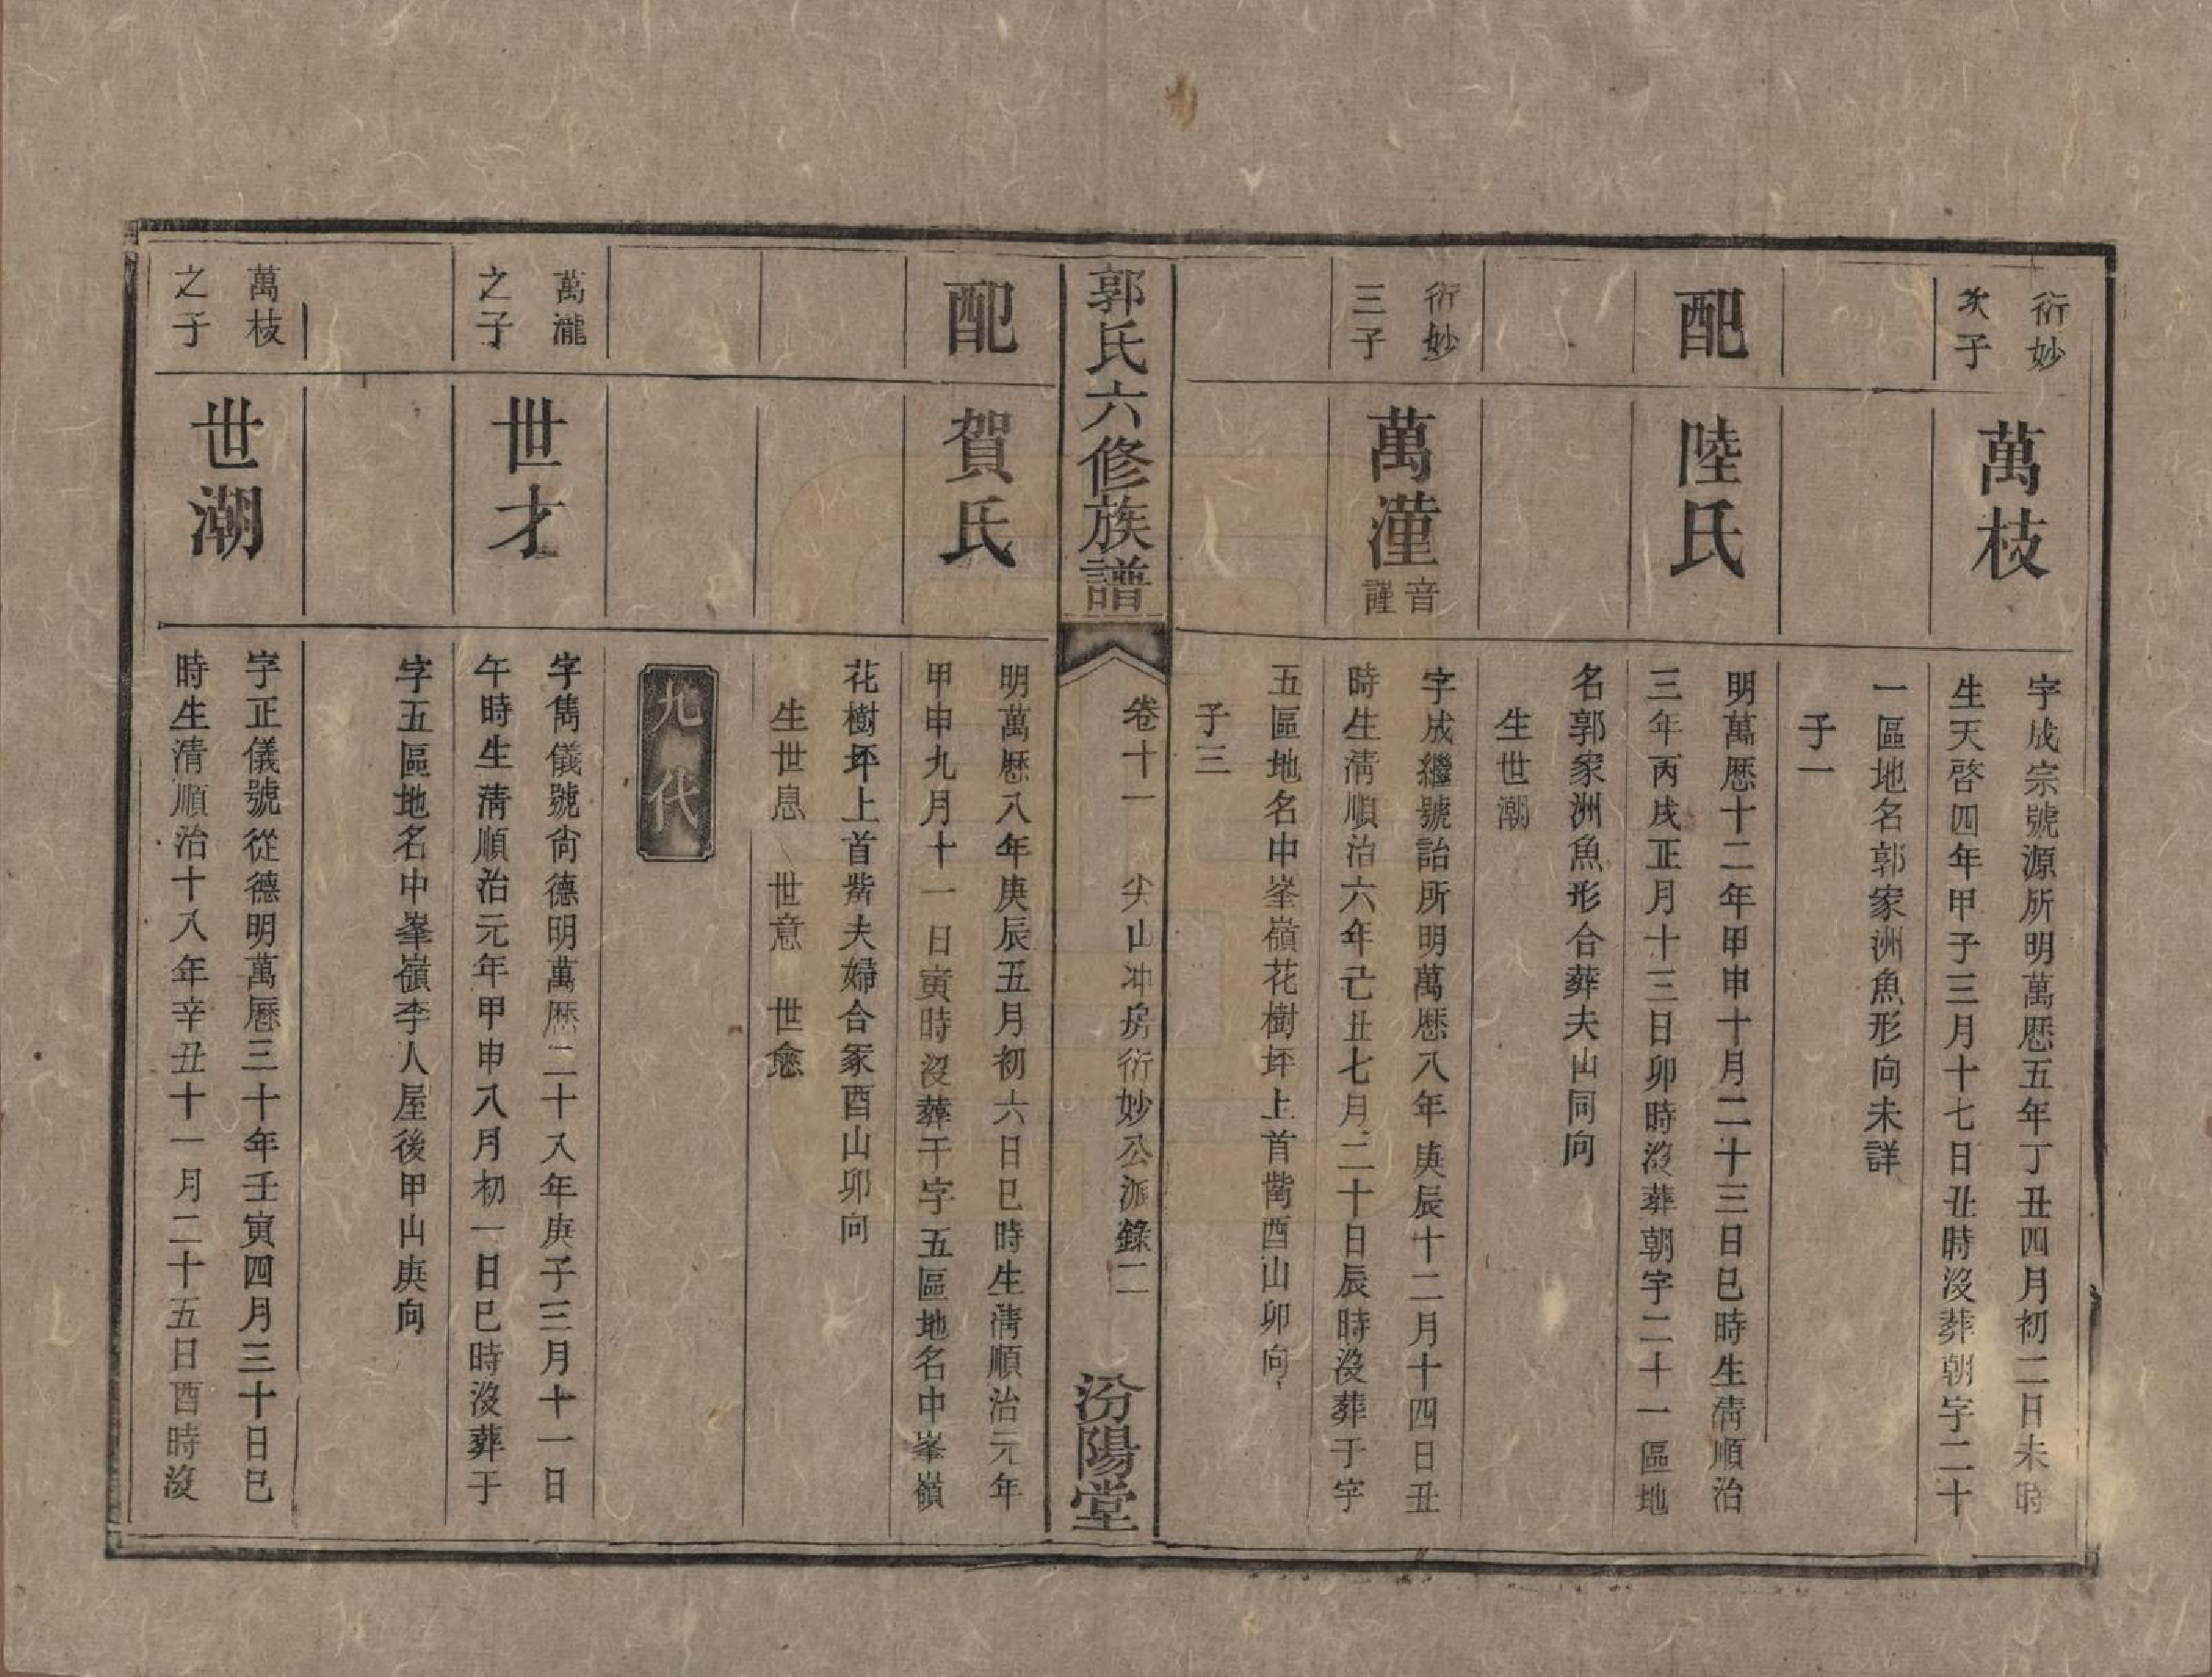 衍妙
次子
萬枝
字成宗號源所明萬歷五年丁丑四月初二日未時
生天啓四年甲子三月十七日丑時沒葬朝字二十
一區地名郭家洲魚形向未詳
子一
配
陸氏
明萬歷十二年甲申十月二十三日巳時生清順治
三年丙戌正月十三日卯時沒葬朝字二十一區地
名郭家洲魚形合葬夫山同向
生世潮
衍妙
三子
萬漌
音
謹
字成繼號詒所明萬歷八年庚辰十二月十四日丑
時生清順治六年己丑七月二十日辰時沒葬于字
五區地名中峯嶺花樹坪上首嘴酉山卯向
子三
郭氏六修族譜
卷十一 尖山冲房衍妙公派錄二
汾陽堂
配
賀氏
明萬歷八年庚辰五月初六日巳時生清順治元年
甲申九月十一日寅時沒葬于字五區地名中峯嶺
花樹坪上首嘴夫婦合冢酉山卯向
生世息 世意 世愈
九代
萬瀧
之子
世才
字雋儀號尙德明萬歷二十八年庚子三月十一日
午時生清順治元年甲申八月初一日巳時沒葬于
字五區地名中峯嶺李人屋後甲山庚向
萬枝
之子
世潮
字正儀號從德明萬歷三十年壬寅四月三十日巳
時生清順治十八年辛丑十一月二十五日酉時沒